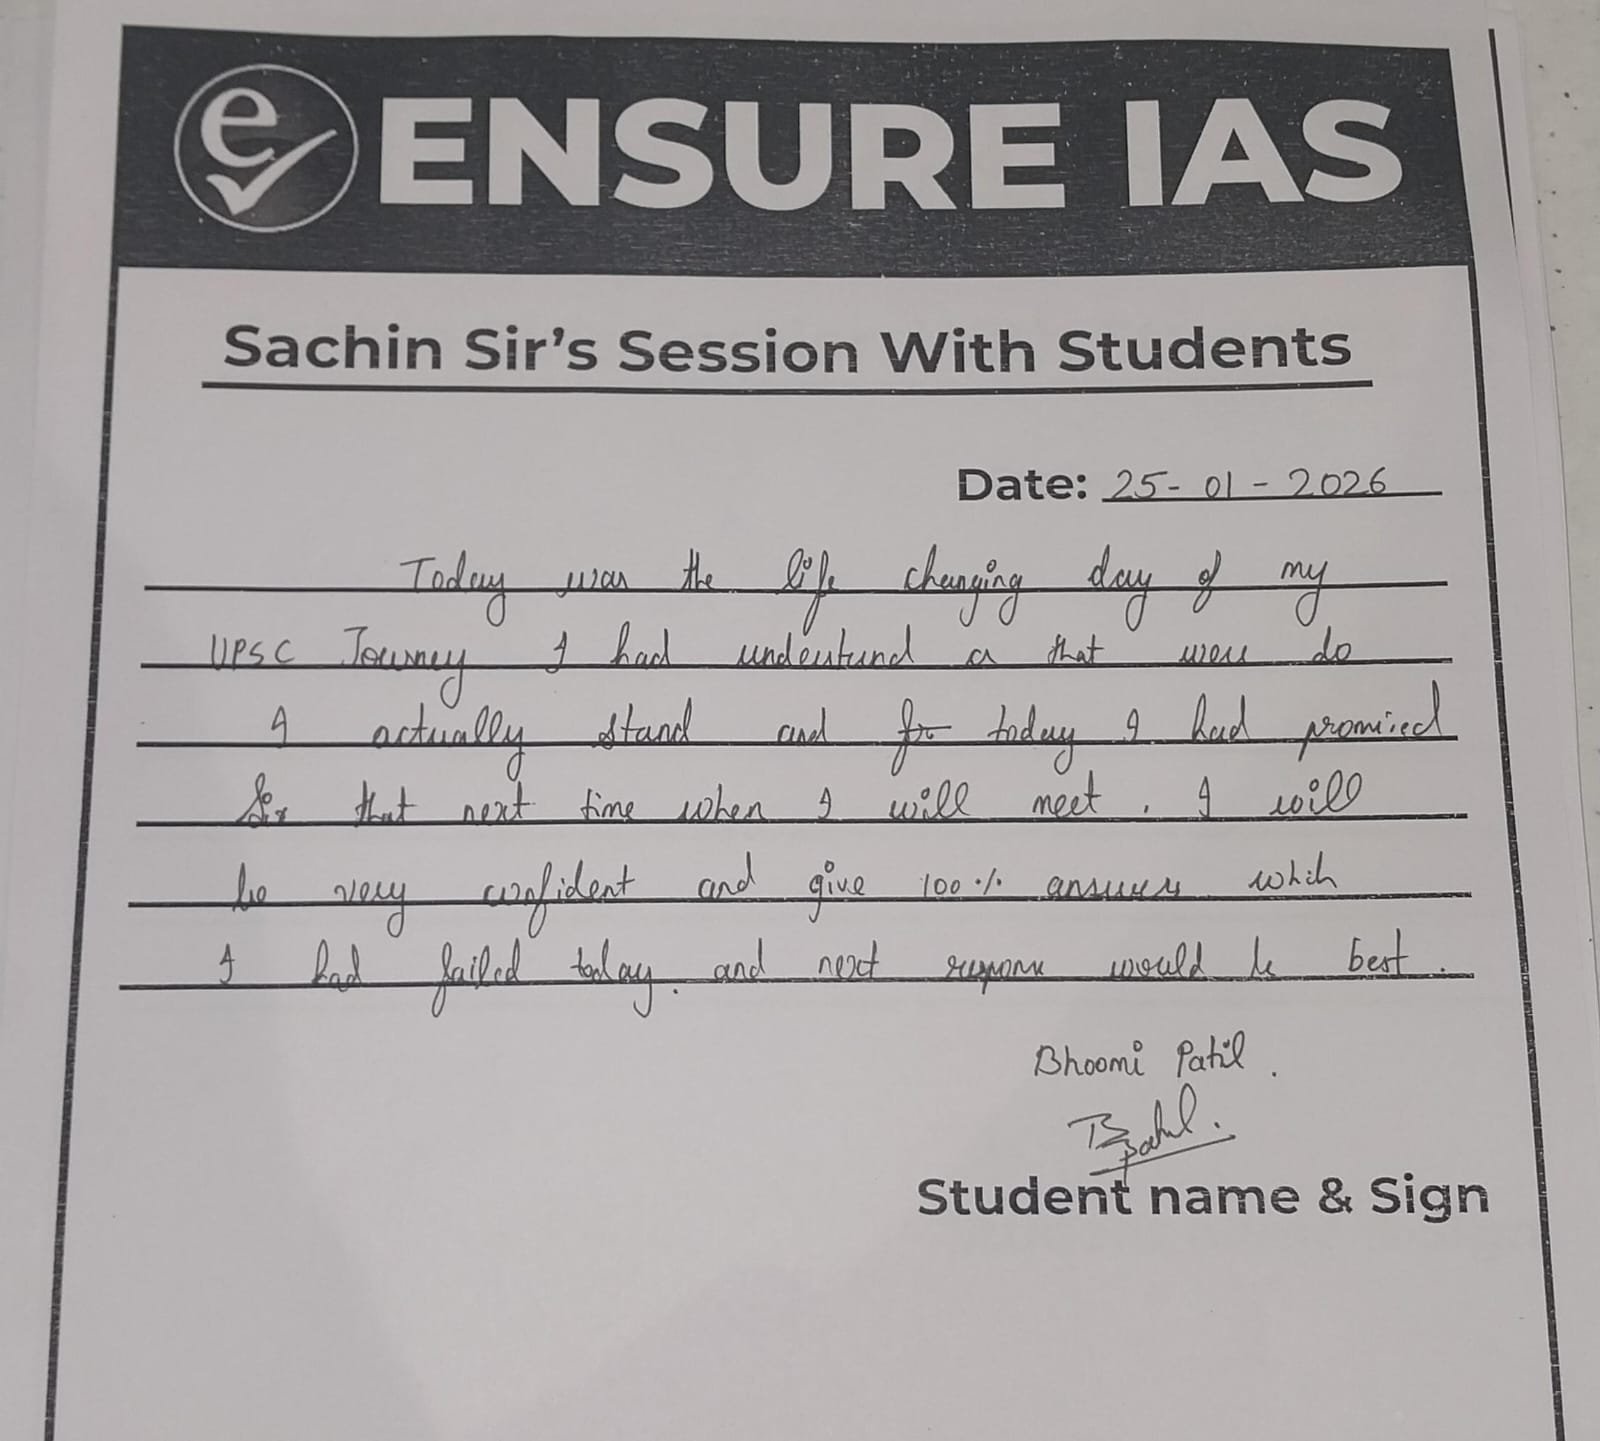 e ENSURE IAS
Sachin Sir's Session With Students
Date: 25-01-2026
Today was the life changing day of my
UPSC Journey I had understand a that were do
I actually stand and for today I had promised
Sir that next time when I will meet. I will
be very confident and give 100% answers which
I had failed today. and next response would be best.
Bhoomi Patil.
BPatil.
Student name & Sign